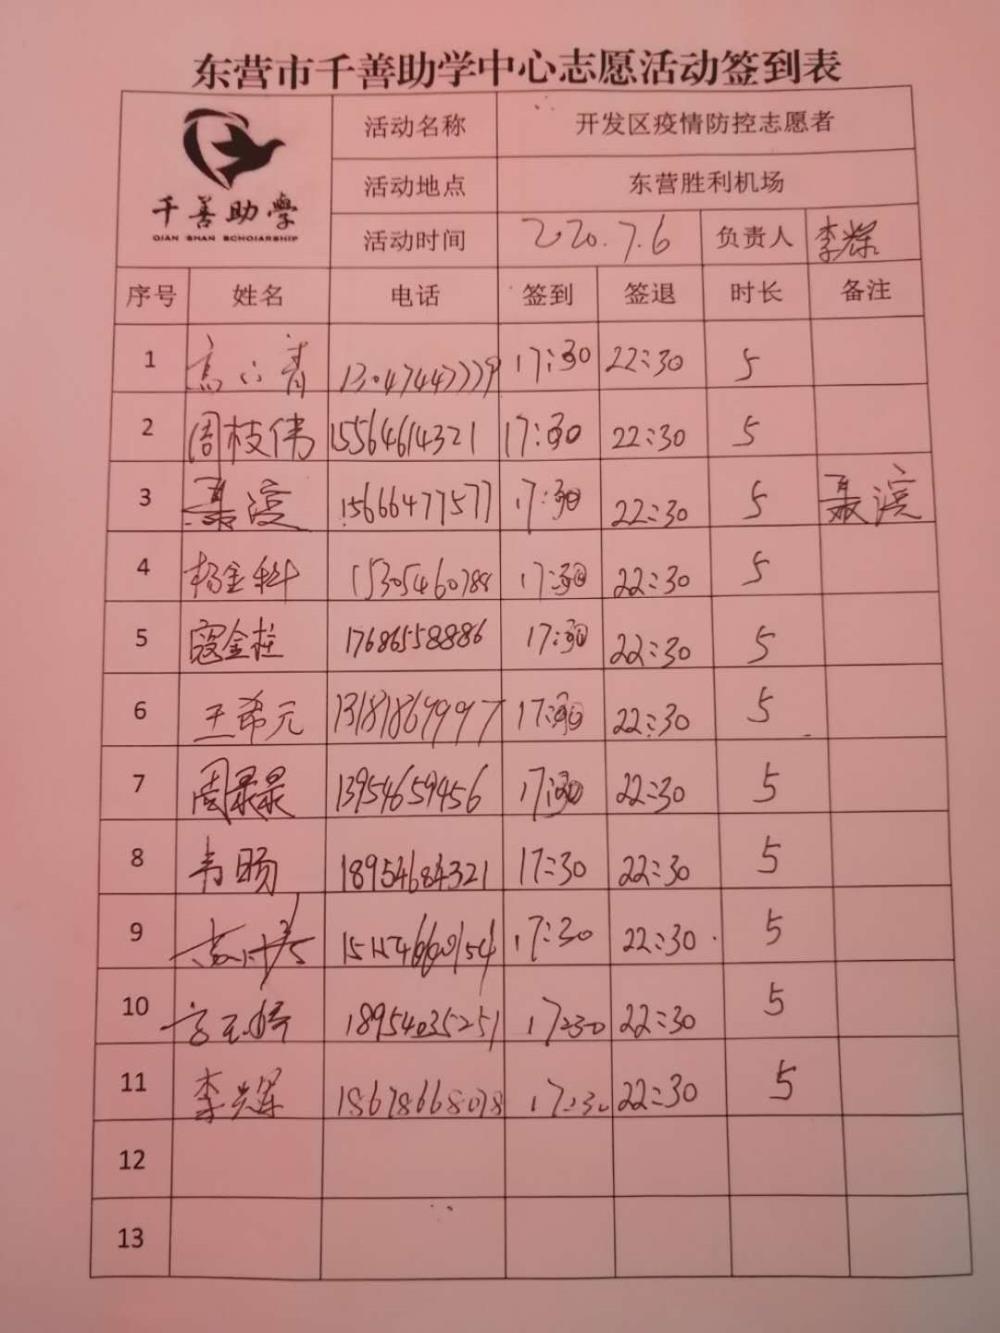 东营市千善助学中心志愿活动签到表
千善助學
QIAN SHAN SCHOLARSHIP
活动名称 开发区疫情防控志愿者
活动地点 东营胜利机场
活动时间 2020.7.6 负责人 李辉
序号 姓名 电话 签到 签退 时长 备注
1 17:30 22:30 5
2 周枝伟 15564614321 17:30 22:30 5
3 聂滨 15666477577 17:30 22:30 5 聂滨
4 杨金科 15305460788 17:30 22:30 5
5 寇金柱 17686558886 17:30 22:30 5
6 王希元 13181869997 17:30 22:30 5
7 13954659456 17:30 22:30 5
8 韦旸 18954684321 17:30 22:30 5
9 17:30 22:30 5
10 18954035251 17:30 22:30 5
11 李辉 18678668078 17:30 22:30 5
12
13